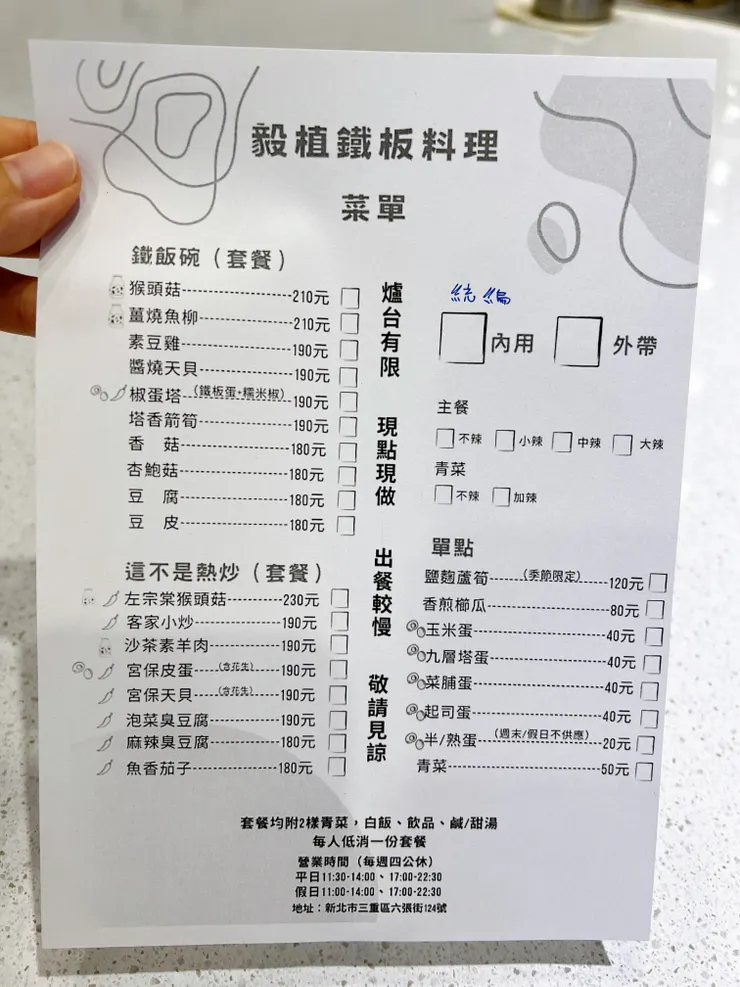 毅植鐵板料理
菜單
鐵飯碗（套餐）
猴頭菇----------210元
薑燒魚柳----------210元
素豆雞----------190元
醬燒天貝----------190元
椒蛋塔--(鐵板蛋+糯米椒)--190元
塔香箭筍----------190元
香　菇----------180元
杏鮑菇----------180元
豆　腐----------180元
豆　皮----------180元
這不是熱炒（套餐）
左宗棠猴頭菇----------230元
客家小炒----------190元
沙茶素羊肉----------190元
宮保皮蛋---(含花生)---190元
宮保天貝---(含花生)---190元
泡菜臭豆腐----------190元
麻辣臭豆腐----------180元
魚香茄子----------180元
爐台有限　現點現做　出餐較慢　敬請見諒
統編
內用　外帶
主餐
不辣　小辣　中辣　大辣
青菜
不辣　加辣
單點
鹽麴蘆筍---(季節限定)---120元
香煎櫛瓜----------80元
玉米蛋----------40元
九層塔蛋----------40元
菜脯蛋----------40元
起司蛋----------40元
半/熟蛋--(週末/假日不供應)--20元
青菜----------50元
套餐均附2樣青菜，白飯、飲品、鹹/甜湯
每人低消一份套餐
營業時間（每週四公休）
平日11:30-14:00、17:00-22:30
假日11:00-14:00、17:00-22:30
地址：新北市三重區六張街124號